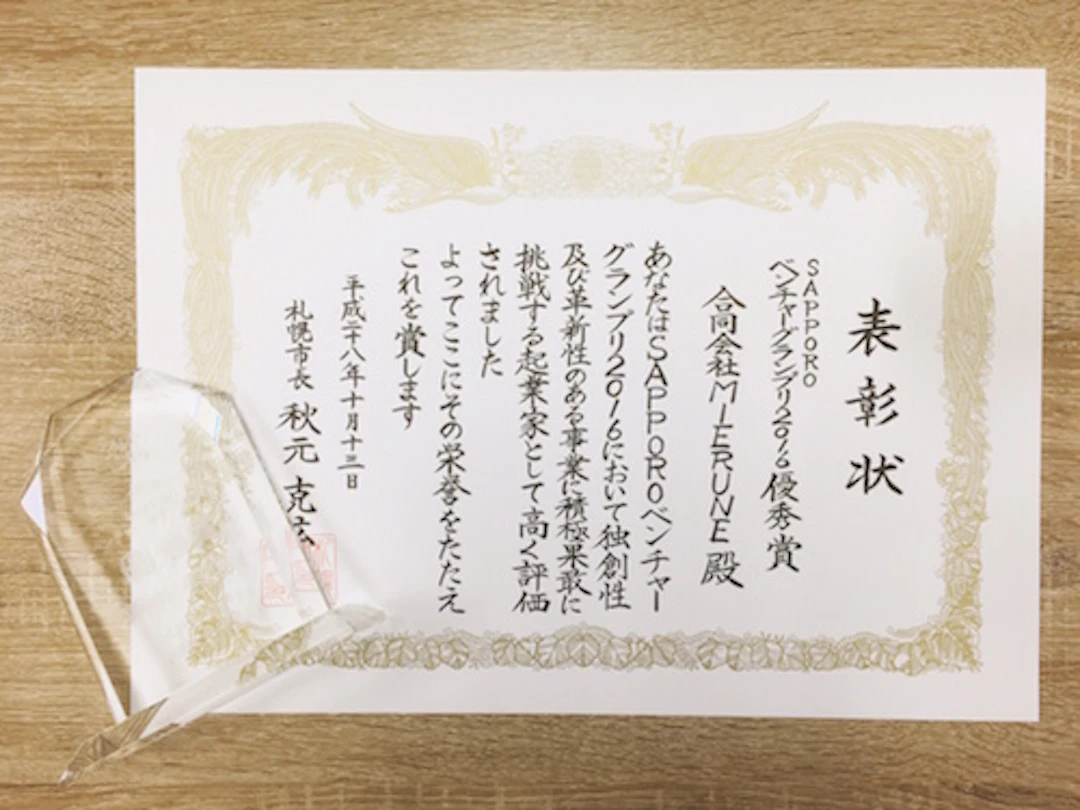 表彰状
SAPPORO
ベンチャーグランプリ2016優秀賞
合同会社MIERUNE殿
あなたはSAPPOROベンチャー
グランプリ2016において独創性
及び革新性のある事業に積極果敢に
挑戦する起業家として高く評価
されました
よってここにその栄誉をたたえ
これを賞します
平成二十八年十月十三日
札幌市長 秋元克広